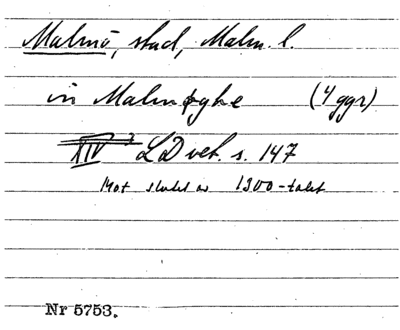 Malmö, stad, Malm. l.
in Malmøghe (4 ggr)
XIV 3 LDvet. s. 147
Mot slutet av 1300-talet
Nr 5753.